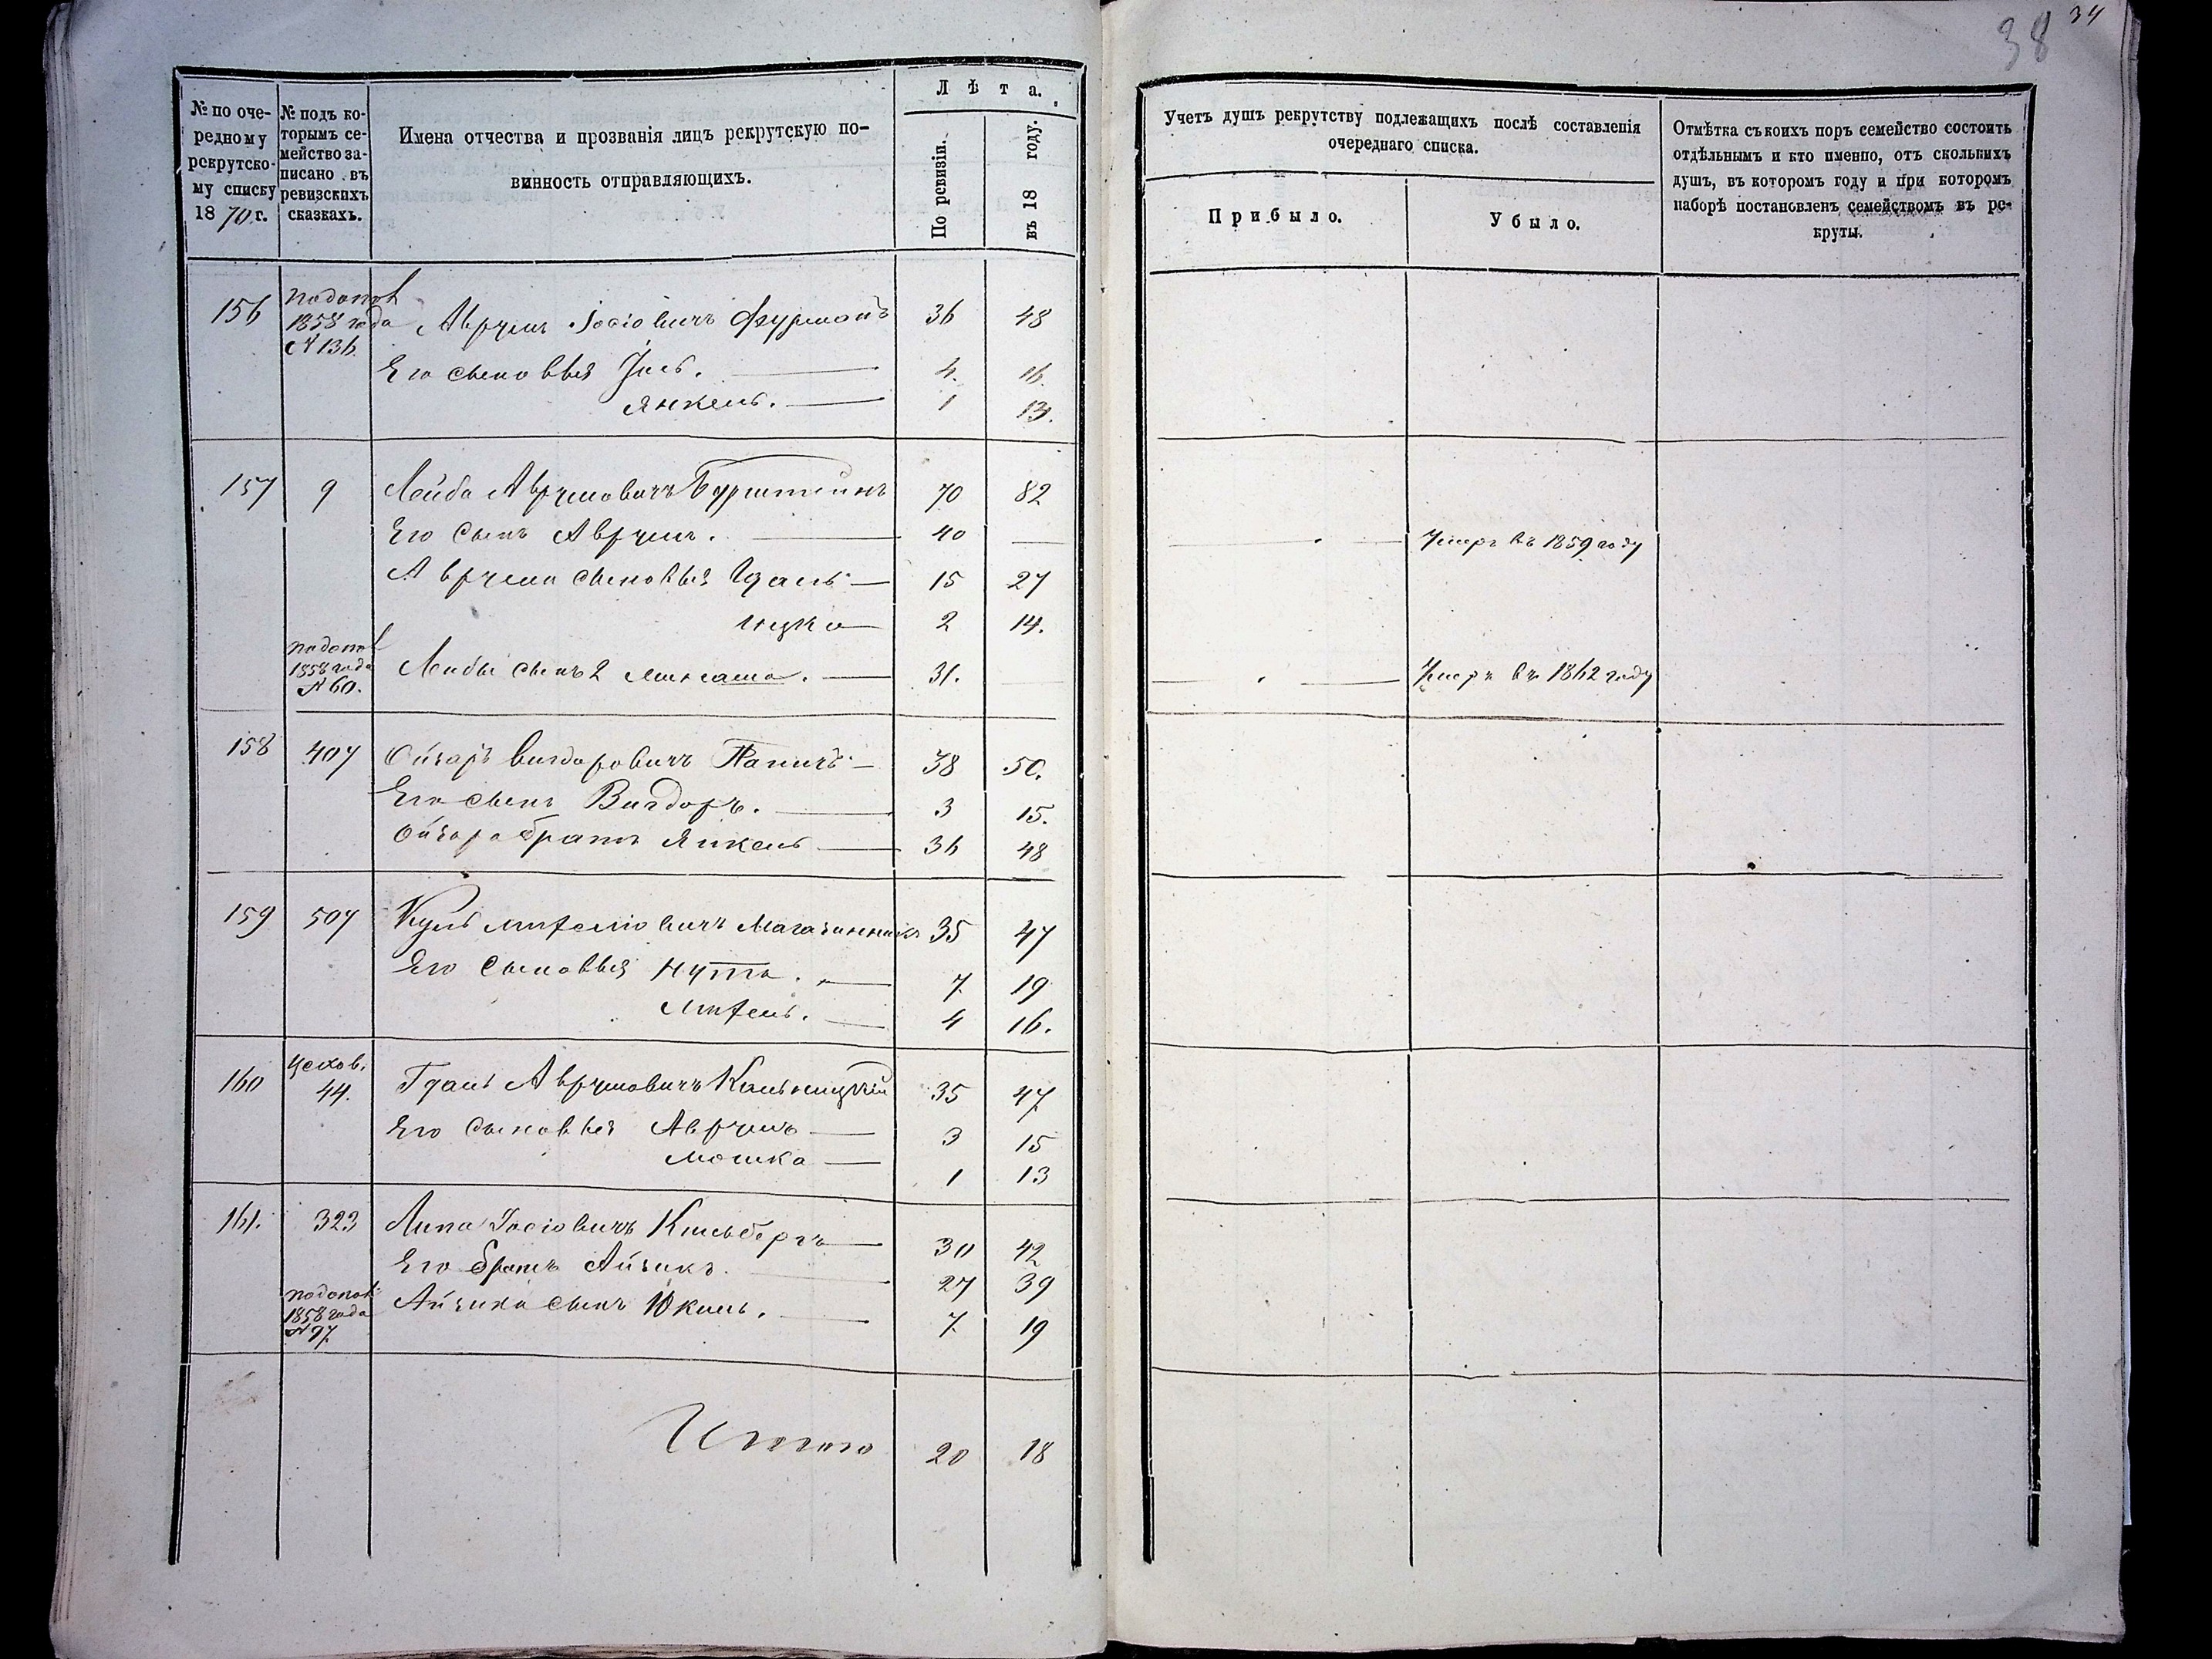 38 34
№ по оче-
редному
рекрутско-
му списку
18 70 г.
№ подъ ко-
торымъ се-
мейство за-
писано въ
ревизскихъ
сказкахъ.
Имена отчества и прозванія лицъ рекрутскую по-
винность отправляющихъ.
Лѣта.
По ревизіи.
въ 18 году.
Учетъ душъ рекрутству подлежащихъ послѣ составленія
очереднаго списка.
Прибыло.
Убыло.
Отмѣтка съ коихъ поръ семейство состоитъ
отдѣльнымъ и кто именно, отъ сколькихъ
душъ, въ которомъ году и при которомъ
наборѣ постановленъ семействомъ въ ре-
круты.
156
1858 года
№ 136
Аврумъ Іосіовичъ Фурманъ 36 48
Его сыновья 4. 16.
Янкель. 1 13.
157 9 Лейба Аврумовичъ Бурштейнъ 70 82
Его сынъ Аврумъ. 40 — Умеръ въ 1859 году
Аврума сыновья 15 27
Ицко 2 14.
1858 года
№ 60.
Лейбы сынъ 2 31. Умеръ въ 1862 году
158 407 Ойзаръ Вигдоровичъ 38 50.
Его сынъ Вигдоръ. 3 15.
Ойзара братъ Янкель 36 48
159 507 Магазинникъ 35 47
Его сыновья Нута. 7 19
4 16.
160 Цехов.
44.
Аврумовичъ 35 47
Его сыновья Аврумъ 3 15
Мошка 1 13
161. 323 Липа Іосіовичъ 30 42
Его братъ Айзикъ. 27 39
1858 года
№ 97.
Айзика сынъ 7 19
Итого 20 18